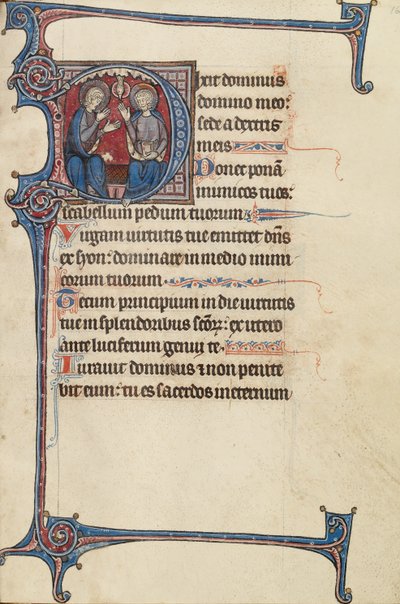 Dixit dominus
domino meo:
sede a dextris
meis
Donec ponā
inimicos tuos:
scabellum pedum tuorum
Virgam virtutis tue emittet dn̄s
ex syon: dominare in medio inimi
corum tuorum
Tecum principium in die virtutis
tue in splendoribus scōr̄: ex utero
ante luciferum genui te
Iuravit dominus ⁊ non penite
bit eum: tu es sacerdos in eternum